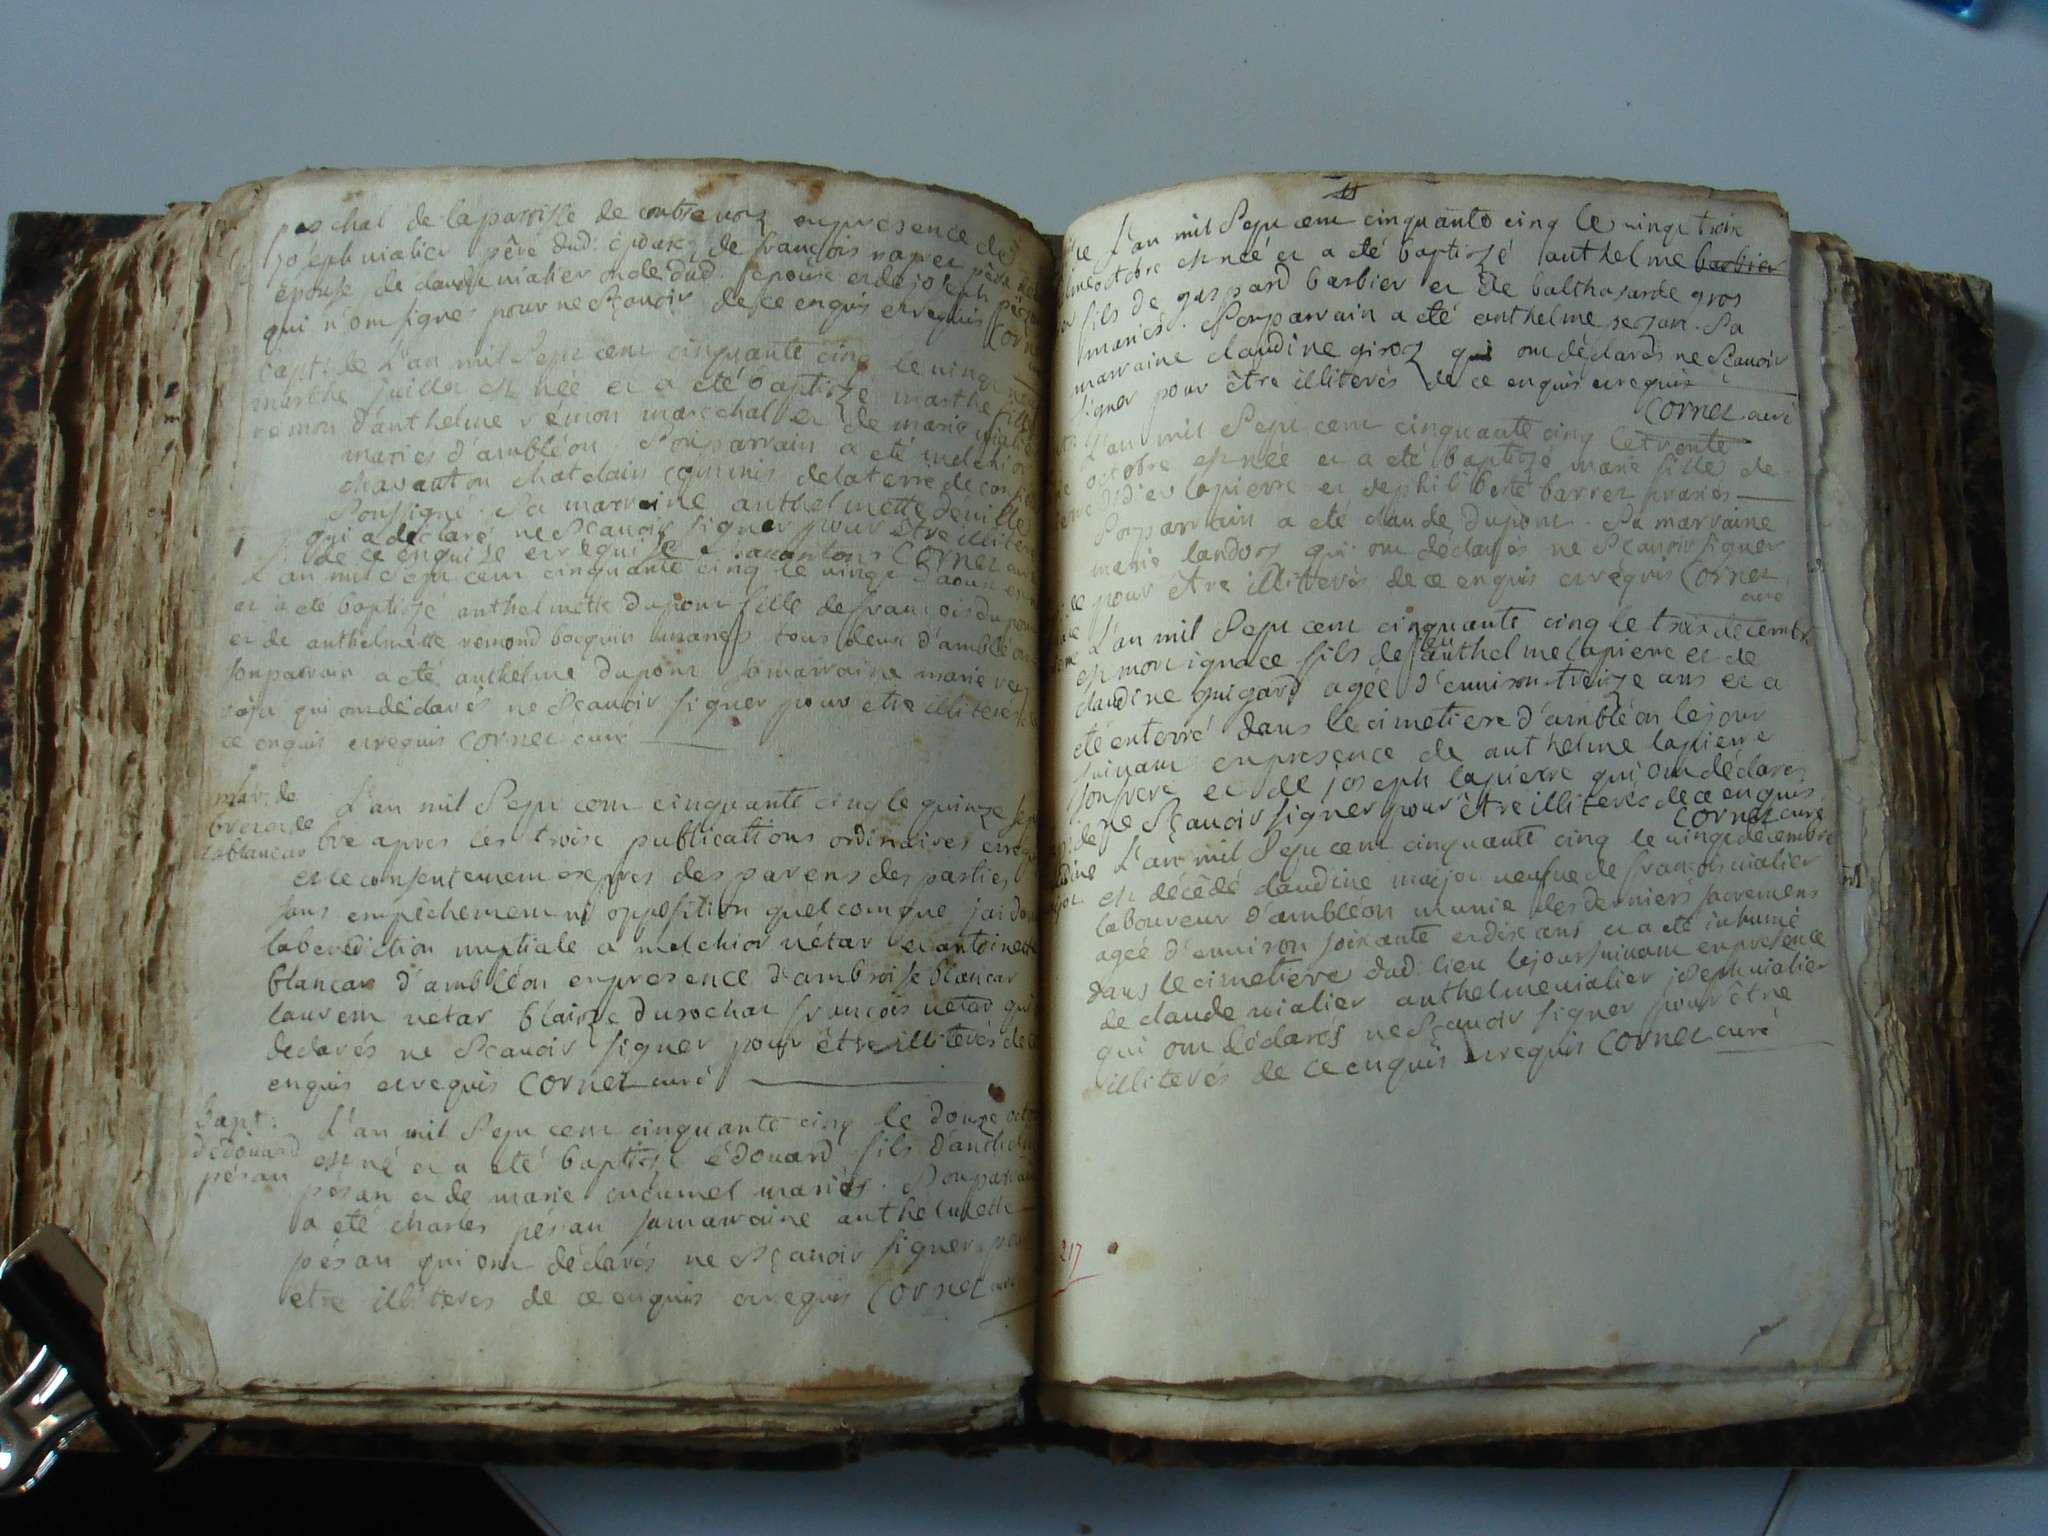 paschal de la parroisse de contrevoz en presence de
joseph vialier père dud: époux, de françois napez père de
épouse de claude vialier oncle dud. epouse et de joseph
qui n'ont signés pour ne sçavoir de ce enquis et requis Cornet
bapt: de L'an mil sept cent cinquante cinq le vingt
marthe juillet est née et a eté baptisé marthe fille
remon d'anthelme remon mareschal et de marie vialier
mariés d'ambléon. Son parrain a eté melchior
chavanton chatelain commis de la terre de
soussigné. Sa marraine anthelmette deville
qui a déclaré ne sçavoir signer pour être illiterée
de ce enquise et requise Chavanton Cornet curé
L'an mil sept cent cinquante cinq le vingt d'aoust est née
et a eté baptisé anthelmette dupont fille de françois dupont
et de anthelmette remond bocquin mariés tous deux d'ambléon
son parrain a eté anthelme dupont sa marraine marie
qui ont déclarés ne sçavoir signer pour etre illiterés de
ce enquis et requis Cornet curé
mar: de L'an mil sept cent cinquante cinq le quinze sept
bre apres les trois publications ordinaires
blancar et le consentement exprès des parens des parties
sans empêchement ni opposition quelconque j'ai donné
la benediction nuptiale a melchior nétar et antoinette
blancar d'ambléon en presence d'ambroise blancar
laurent netar blaize durochat françois netar qui
declarés ne sçavoir signer pour être illiterés de ce
enquis et requis Cornet curé
bapt: L'an mil sept cent cinquante cinq le douze octo
d'édouard est né et a eté baptisé édouard fils d'anthelme
pésan pésan et de marie mariés. Son parrain
a eté charles pésan sa marraine anthelmette
pésan qui ont déclarés ne sçavoir signer pour
etre illiterés de ce enquis et requis Cornet curé
L'an mil sept cent cinquante cinq le vingt trois
octobre est née et a eté baptisé anthelme barbier
fils de gaspard barbier et de balthasarde gros
mariés. Son parrain a eté anthelme sezan. Sa
marraine claudine giroz qui ont déclarés ne sçavoir
signer pour être illiterés de ce enquis et requis
Cornet curé
L'an mil sept cent cinquante cinq le trente
octobre est née et a eté baptisé marie fille de
didier lapierre et de philiberte barret mariés
Son parrain a eté claude dupont. Sa marraine
marie landoz qui ont déclarés ne sçavoir signer
pour être illiterés de ce enquis et requis Cornet
curé
L'an mil sept cent cinquante cinq le trois decembre
est mort ignace fils de feu anthelme lapierre et de
claudine guigard agée d'environ treize ans et a
eté enterré dans le cimetiere d'ambléon le jour
suivant en presence de anthelme lapierre
son frere et de joseph lapierre qui ont déclarés
ne sçavoir signer pour être illiterés de ce enquis
Cornet curé
L'an mil sept cent cinquante cinq le vingt decembre
est décédé claudine majou veufve de françois vialier
laboureur d'ambléon munie des derniers sacremens
agée d'environ soixante et dix ans et a eté inhumé
dans le cimetiere dud. lieu le jour suivant en presence
de claude vialier anthelme vialier joseph vialier
qui ont déclarés ne sçavoir signer pour être
illiterés de ce enquis et requis Cornet curé
217